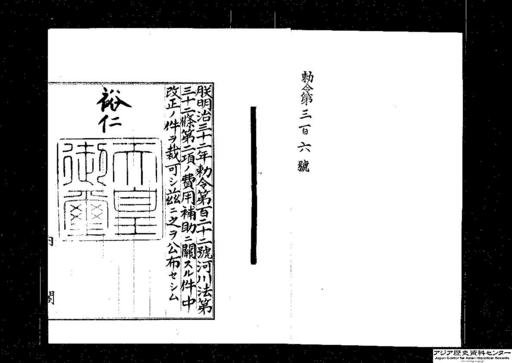 勅令第三百六號
朕明治三十二年勅令第百二十二號河川法第
三十二條第二項ノ費用補助ニ關スル件中
改正ノ件ヲ裁可シ茲ニ之ヲ公布セシム
裕仁
天皇
御璽
内閣
アジア歴史資料センター
Japan Center for Asian Historical Records